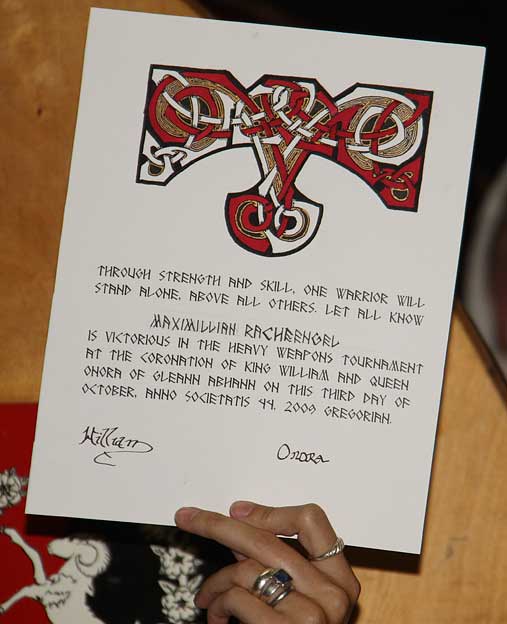 THROUGH STRENGTH AND SKILL, ONE WARRIOR WILL
STAND ALONE, ABOVE ALL OTHERS. LET ALL KNOW
MAXIMILLIAN RACHBENGEL
IS VICTORIOUS IN THE HEAVY WEAPONS TOURNAMENT
AT THE CORONATION OF KING WILLIAM AND QUEEN
ONORA OF GLEANN ABHANN ON THIS THIRD DAY OF
OCTOBER, ANNO SOCIETATIS 44, 2009 GREGORIAN.
William Onora